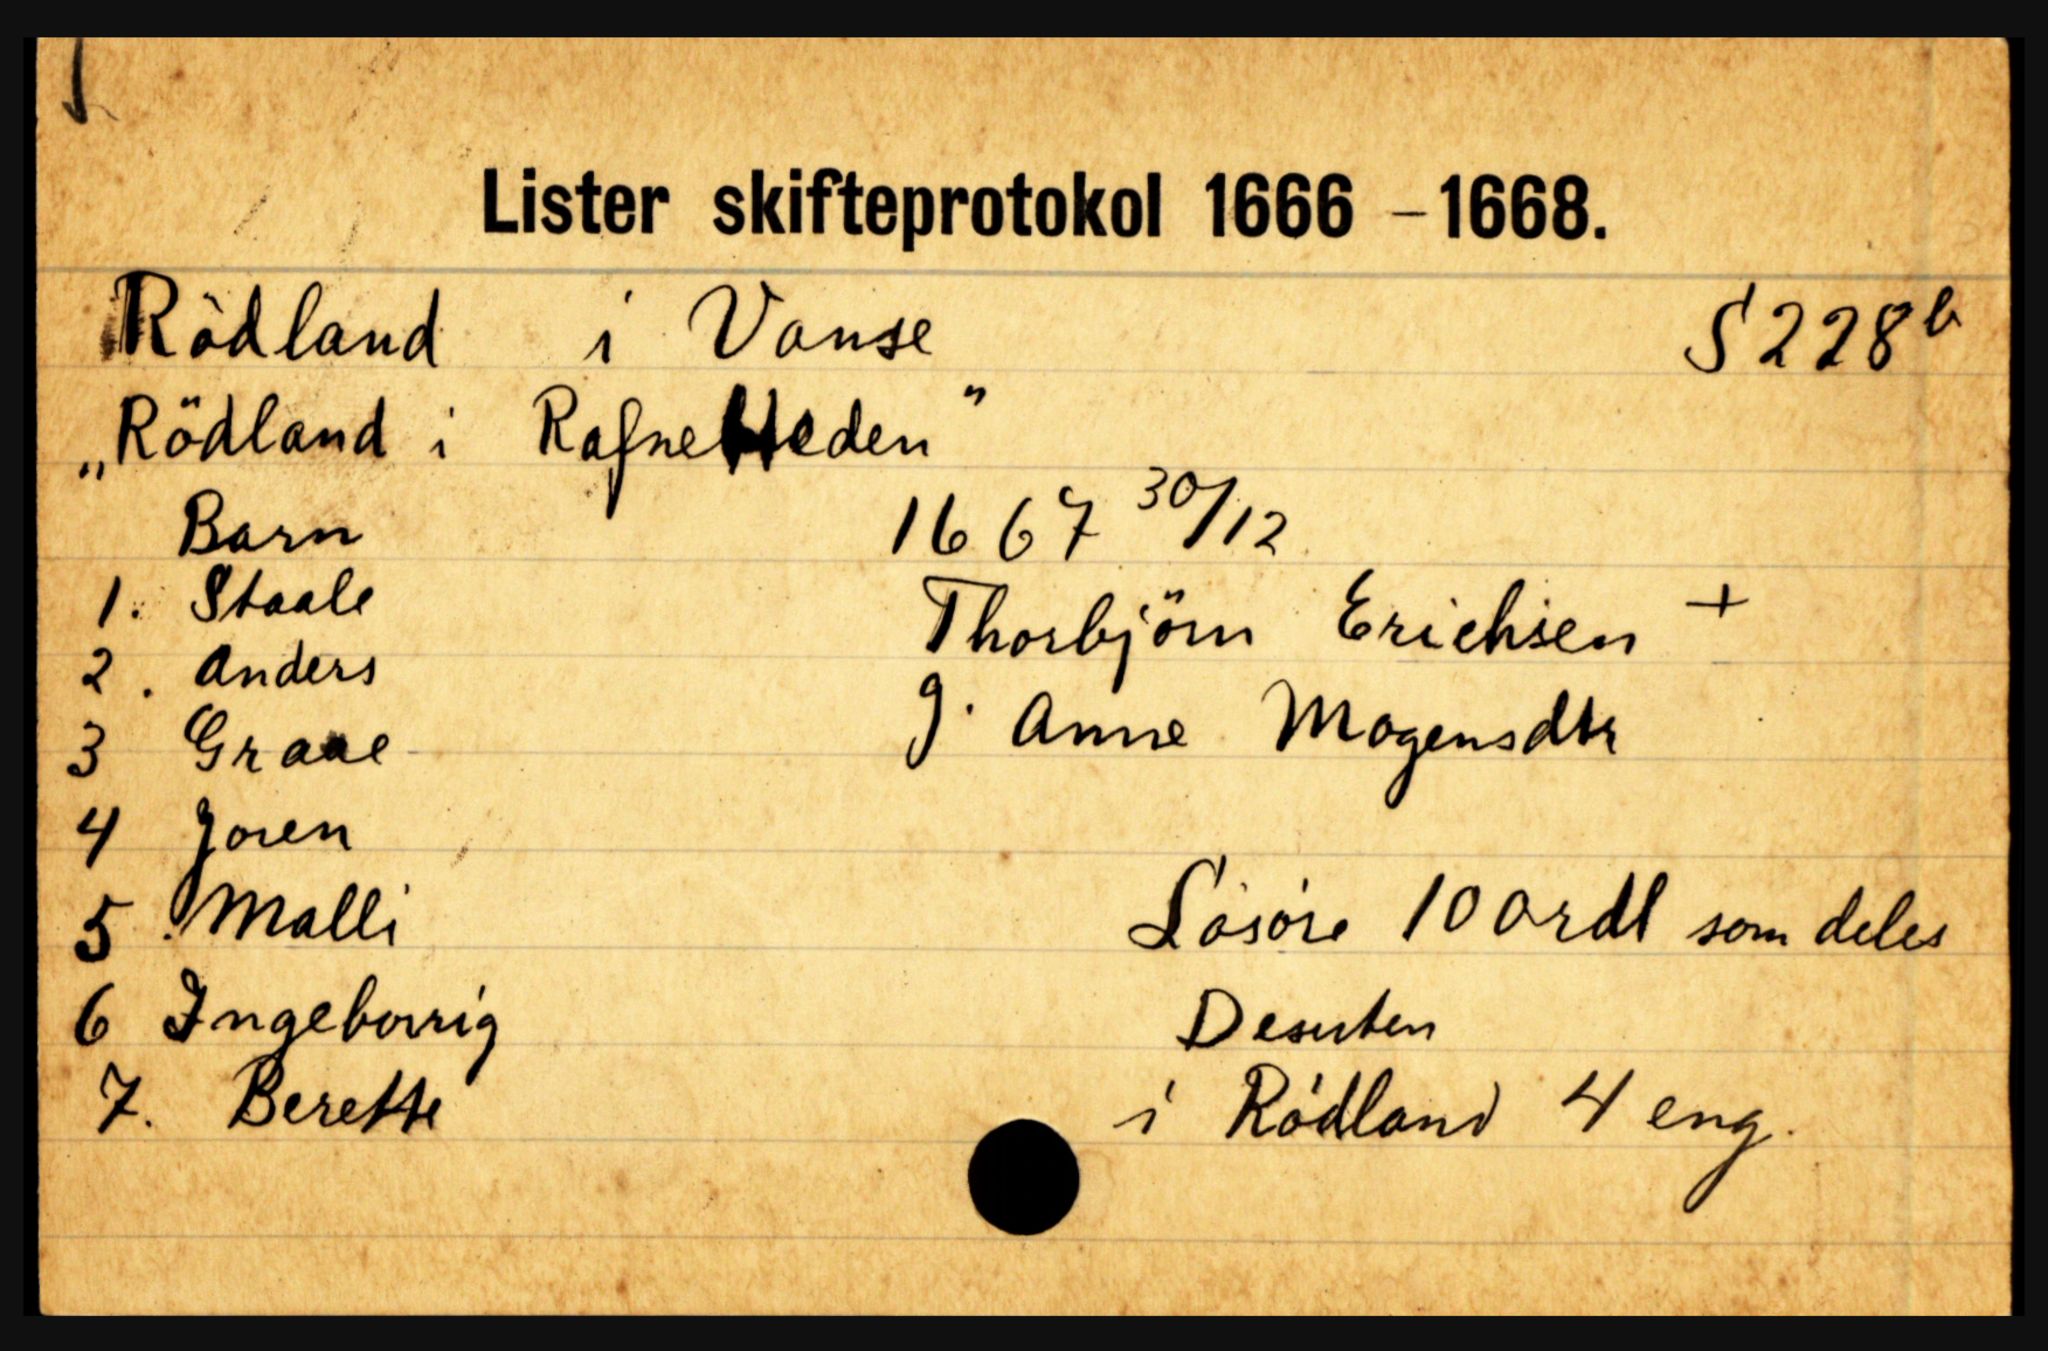 Lister skifteprotokol 1666 – 1668.
Rödland i Vanse S 228 b
„Rödland i Rafneheden"
Barn 1667 30/12
1. Staale Thorbjörn Erichsen +
2. Anders
G. Anne Mogensdtr
3 Graae
4 Joren
5. Malli Lösöre 10 ordl som deles
6 Ingeborrig Desuten
7. Berette i Rödland 4 eng.